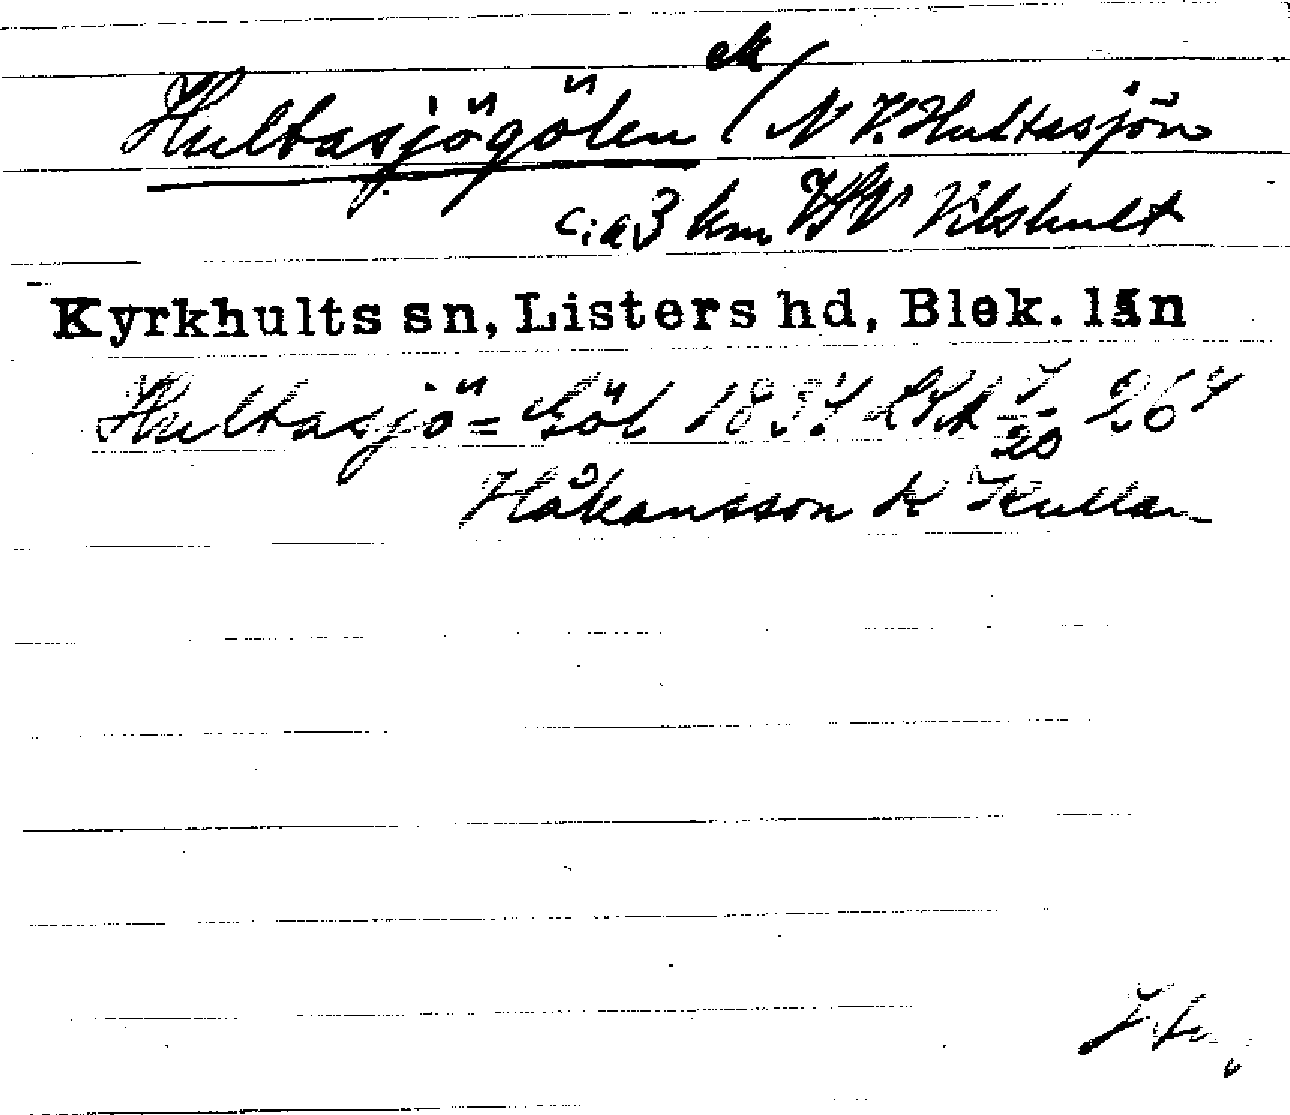 Hultasjögölen ek/ N V. Hultasjön
c:a 3 km VSV Vilshult
Kyrkhults sn, Listers hd, Blek. län
Hultasjö= Göl 1837 LSA 7/20 26
Håkansson K Kullan